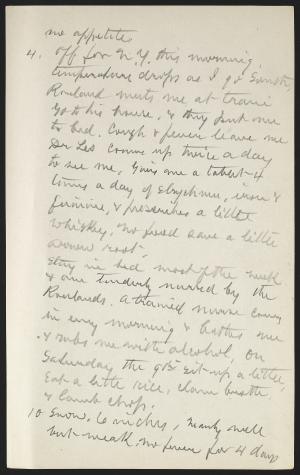 no appetite
4. Off for N.Y. this morning.
temperature drops as I go South,
Rowland meets me at train
Go to his house, & they put me
to bed. Cough & fever leave me
Dr Les comes up twice a day
to see me, Gives me a tablet 4
times a day of strychnia, iron &
quinine, & prescribes a little
whiskey. No food save a little
root.
Stay in bed most of the week
& am tenderly nursed by the
Rowlands. A trained nurse comes
in every morning & bathes me
& rubs me with alcohol. On
Saturday the 9th sit up a little,
Eat a little rice, clam broth
& lamb chop.
10 Snow, 6 inches, nearly well
but weak. No fever for 4 days